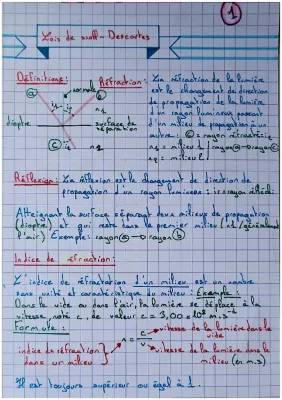 1
Lois de snell-Descartes
Définitions:
Réfraction: La réfraction de la lumière
est le changement de direction
de propagation de la lumière
d'un rayon lumineux passant
d'un milieu de propagation à un
autre: c = rayon réfracté
n1 = milieu 1 / rayon a → rayon c
n2 = milieu
a
normale
b
i1
n1
dioptre
surface de
séparation
c
n2
Réflexion: La réflexion est le changement de direction de
propagation d'un rayon lumineux:
Atteignant la surface séparant deux milieux de propagation
(dioptre) et qui reste dans le premier milieu (n1/généralement
l'air) Exemple: rayon a → rayon b
Indice de réfraction:
L'indice de réfractation d'un milieu est un nombre
sans unité et caractéristique du milieu: Exemple:
Dans le vide ou dans l'air, la lumière se déplace à la
vitesse, noté c, de valeur c = 3,00 x 10^8 m.s^-1
Formule:
indice de réfraction
dans un milieu
n = c/v
vitesse de la lumière dans le
vide
vitesse de la lumière dans le
milieu (en m.s)
Il est toujours supérieur ou égal à 1.